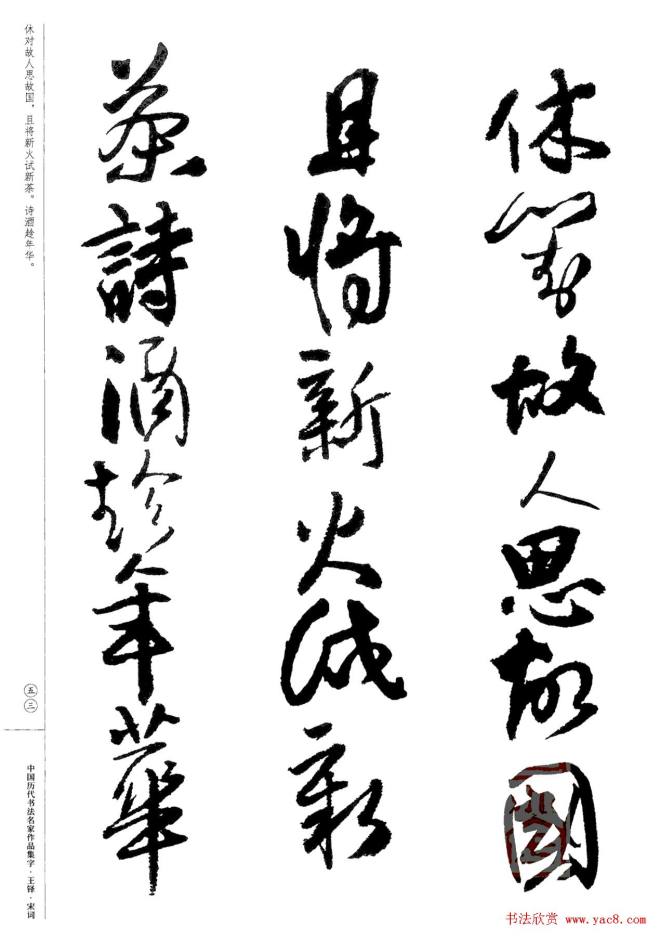 休對故人思故國
且將新火試新
茶詩酒趁年華
休对故人思故国，且将新火试新茶。诗酒趁年华。
五三
中国历代书法名家作品集字·王铎·宋词
书法欣赏 www.yac8.com